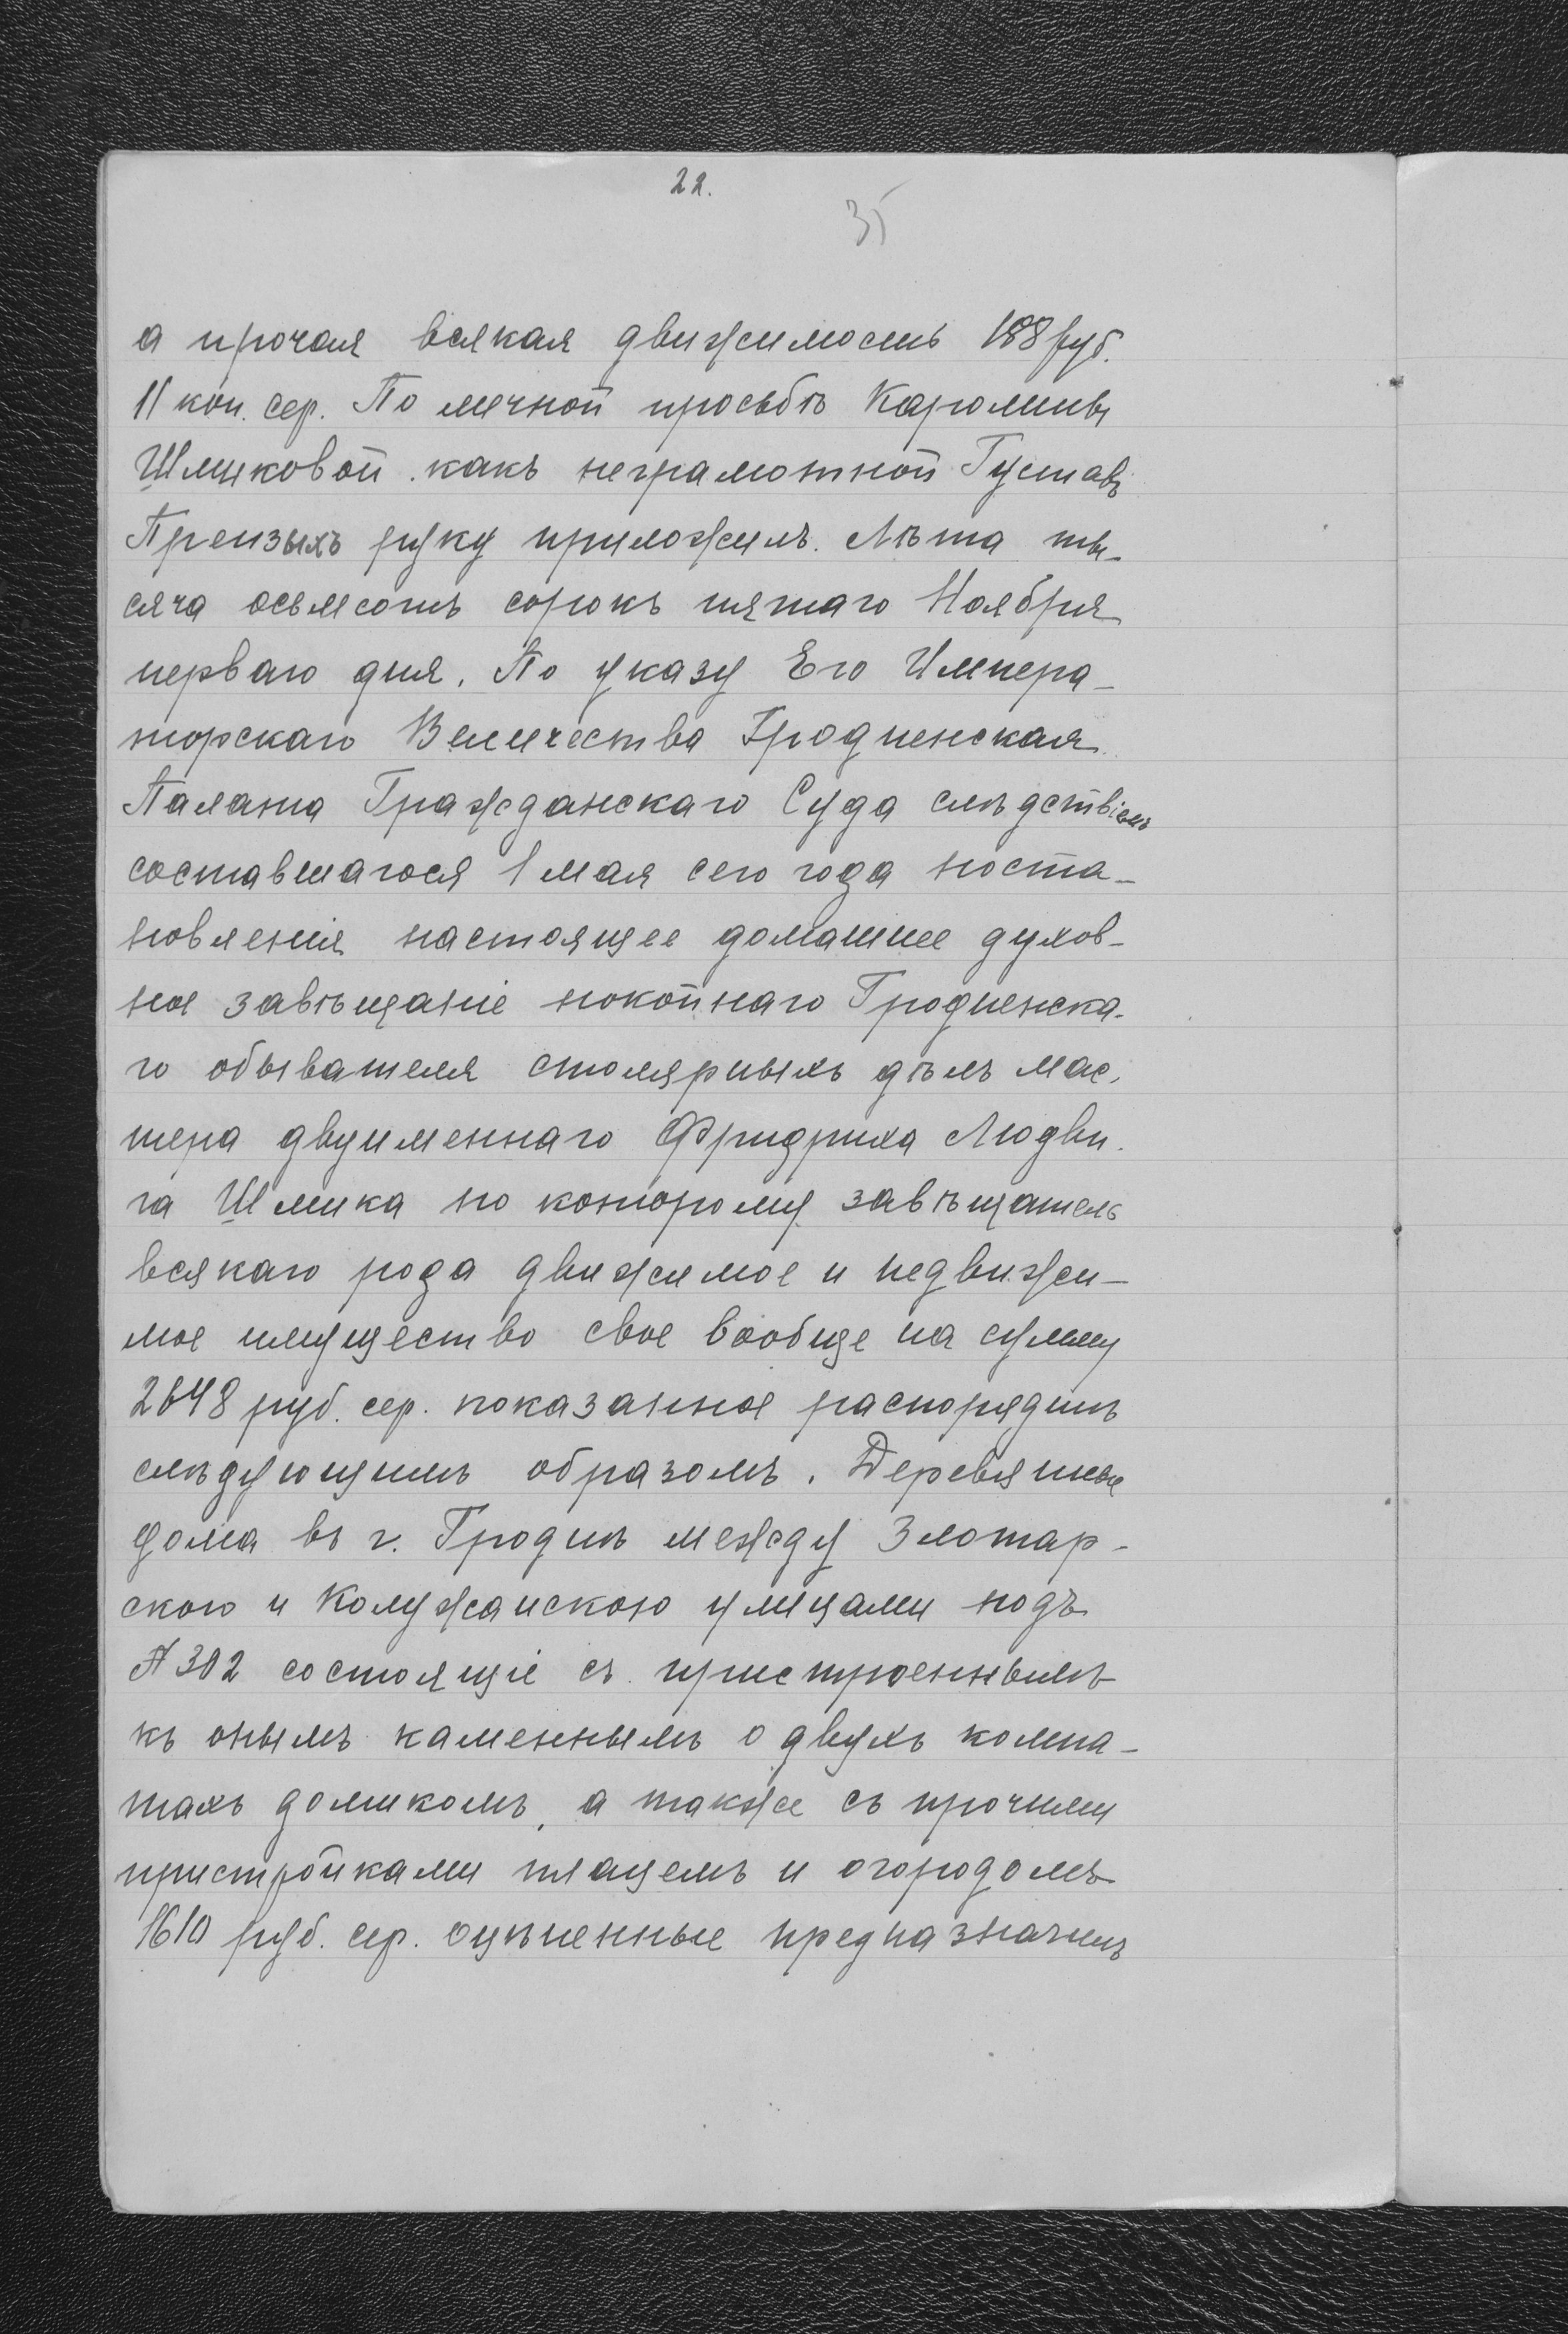 22.
35
а прочая всякая движимость 188 руб.
11 коп. сер. По личной просьбѣ Каролины
Шликовой какъ неграмотной Густавъ
Прейзыхъ руку приложилъ. Лѣта ты-
сяча осьмсотъ сорокъ пятаго Ноября
перваго дня. По указу Его Импера-
торскаго Величества Гродненская
Палата Гражданскаго Суда слѣдствіемъ
составшагося 1 мая сего года поста-
новленія настоящее домашнее духов-
ное завѣщаніе покойнаго Гродненска-
го обывателя столярныхъ дѣлъ мас-
тера двуименнаго Фридриха Людви-
га Шлика по которому завѣщатель
всякаго рода движимое и недвижи-
мое имущество свое вообще на сумму
2648 руб. сер. показанное распорядилъ
слѣдующимъ образомъ. Деревянные
дома въ г. Гроднѣ между Злотар-
скою и Колужанскою улицами подъ
№ 302 состоящіе съ пристроеннымъ
къ онымъ каменнымъ о двухъ комна-
тахъ домикомъ, а также съ прочими
пристройками плацемъ и огородомъ
1610 руб. сер. оцѣненные предназначилъ